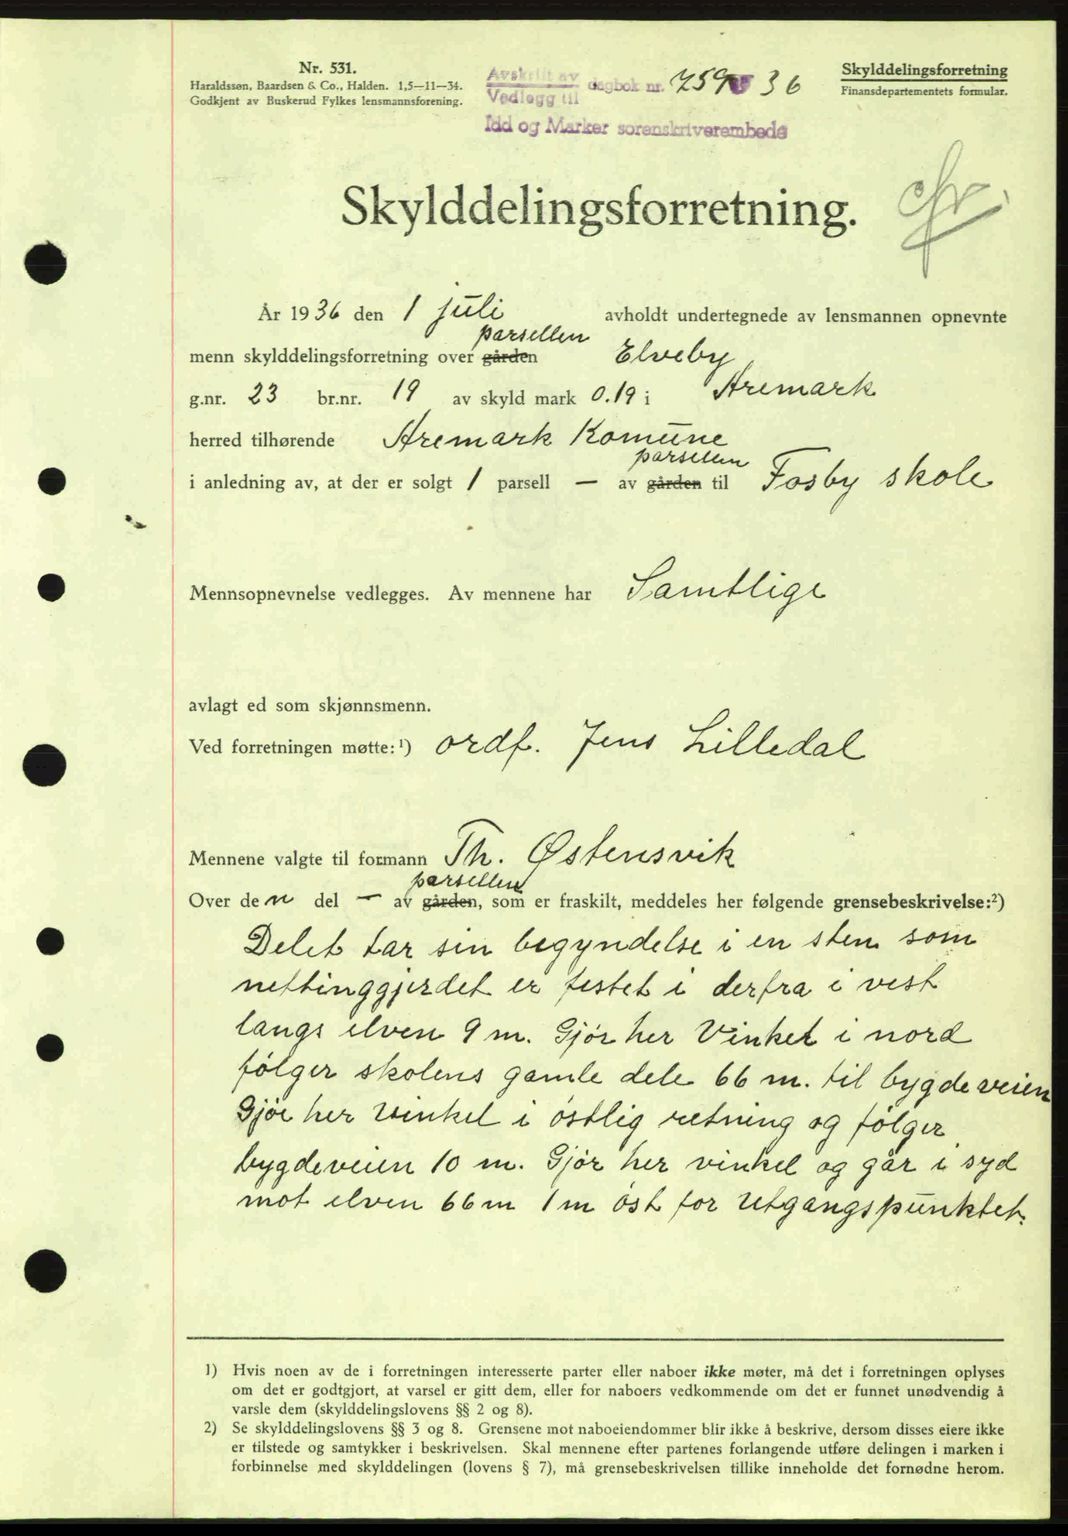 Nr. 531.
Haraldssøn, Baardsen & Co., Halden. 1,5—11—34.
Godkjent av Buskerud Fylkes lensmannsforening.
Avskrift av
Vedlegg til dagbok nr. 759 36
Idd og Marker sorenskriverembede
Skylddelingsforretning
Finansdepartementets formular.
Skylddelingsforretning.
År 1936 den 1 juli avholdt undertegnede av lensmannen opnevnte
parsellen
menn skylddelingsforretning over gården Elveby
g.nr. 23 br.nr. 19 av skyld mark 0.19 i Aremark
herred tilhørende Aremark Komune
parsellen
i anledning av, at der er solgt 1 parsell — av gården til Fosby skole
Mennsopnevnelse vedlegges. Av mennene har Samtlige
avlagt ed som skjønnsmenn.
Ved forretningen møtte:¹) ordf. Jens Lilledal
Mennene valgte til formann Th. Østensvik
parsellen
Over den del — av gården, som er fraskilt, meddeles her følgende grensebeskrivelse:²)
Delet tar sin begyndelse i en sten som
nettinggjerdet er festet i derfra i vest
langs elven 9 m. Gjør her Vinkel i nord
følger skolens gamle dele 66 m. til bygdeveien
Gjør her vinkel i østlig retning og følger
bygdeveien 10 m. Gjør her vinkel og går i syd
mot elven 66 m 1 m øst for utgangspunktet.
1) Hvis noen av de i forretningen interesserte parter eller naboer ikke møter, må det i forretningen oplyses
om det er godtgjort, at varsel er gitt dem, eller for naboers vedkommende om det er funnet unødvendig å
varsle dem (skylddelingslovens §§ 2 og 8).
2) Se skylddelingslovens §§ 3 og 8. Grensene mot naboeiendommer blir ikke å beskrive, dersom disses eiere ikke
er tilstede og samtykker i beskrivelsen. Skal mennene efter partenes forlangende utføre delingen i marken i
forbinnelse med skylddelingen (lovens § 7), må grensebeskrivelsen tillike inneholde det fornødne herom.